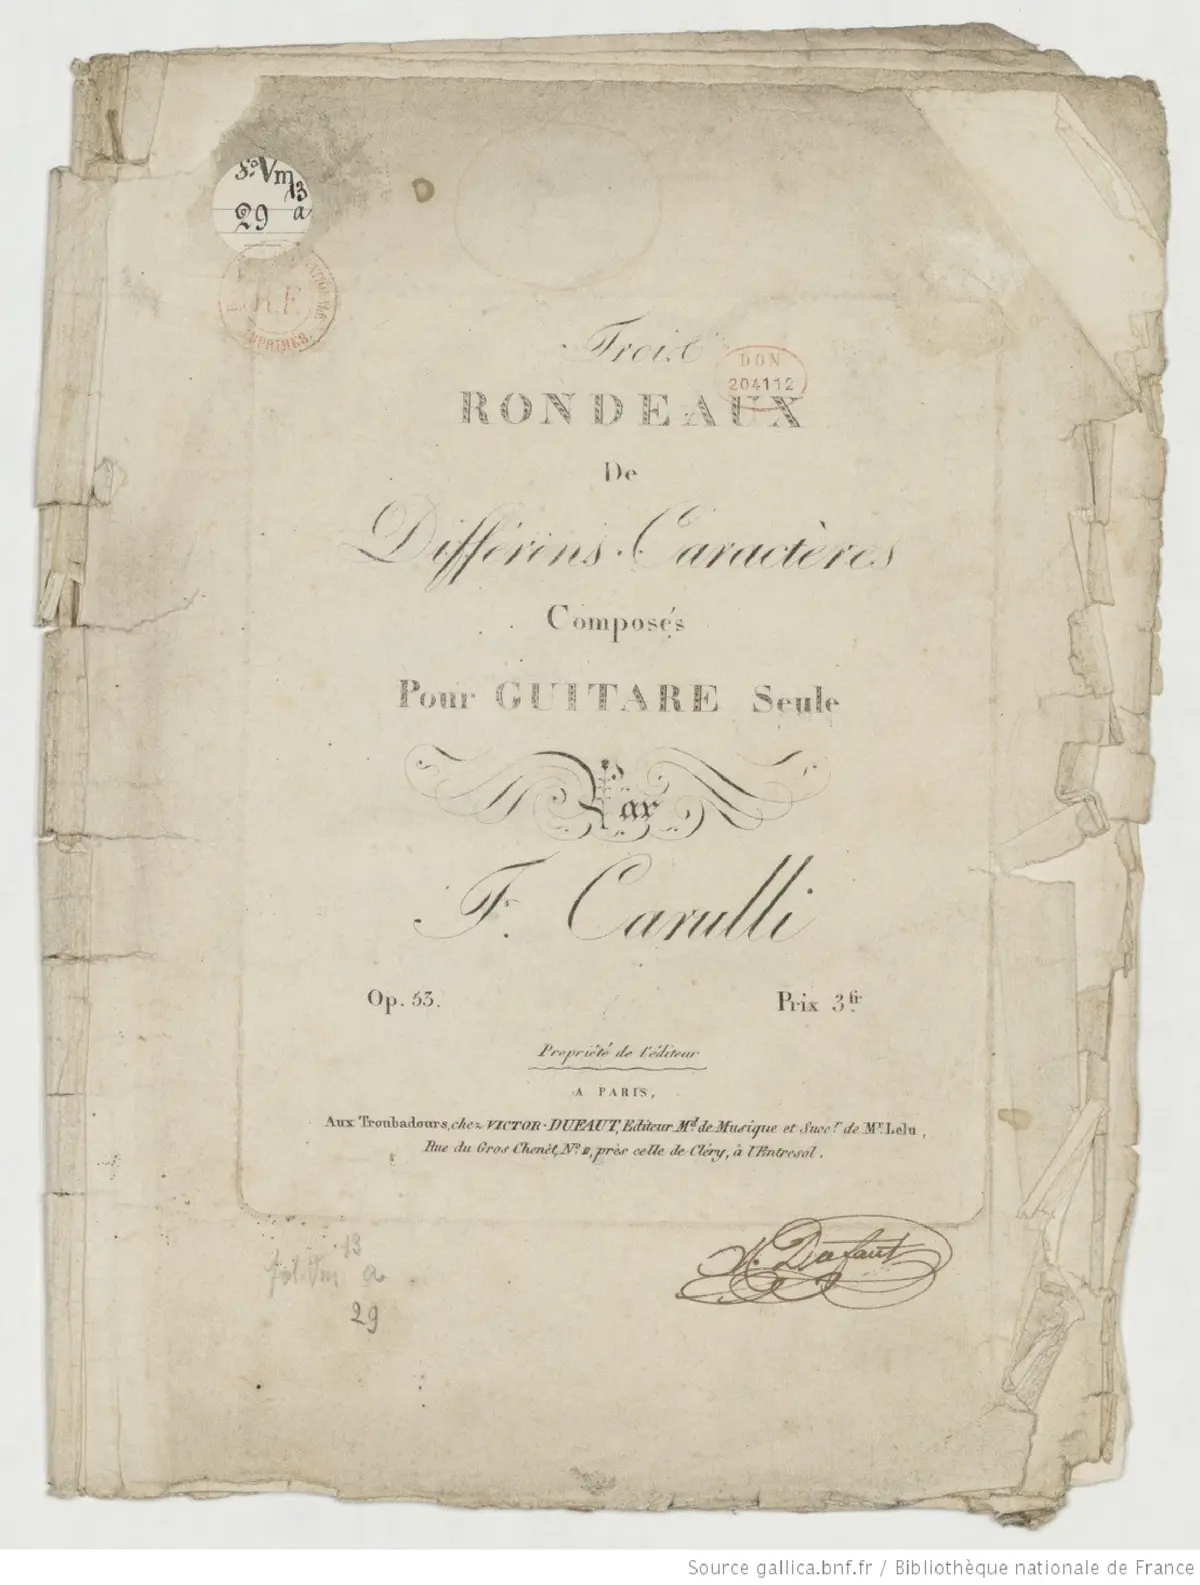 Fo. Vm 13
29 a
R.F.
IMPRIMÉS.
Trois
DON
204112
RONDEAUX
De
Différens Caractères
Composés
Pour GUITARE Seule
Par
F. Carulli
Op. 53.
Prix 3 fr
Propriété de l'éditeur
A PARIS,
Aux Troubadours, chez VICTOR-DUFAUT, Editeur Md. de Musique et Succr. de Mr. Lelu,
Rue du Gros Chenêt, No. , près celle de Cléry, à l'Entresol.
V. Dufaut
13
fol. Vm a
29
Source gallica.bnf.fr / Bibliothèque nationale de France